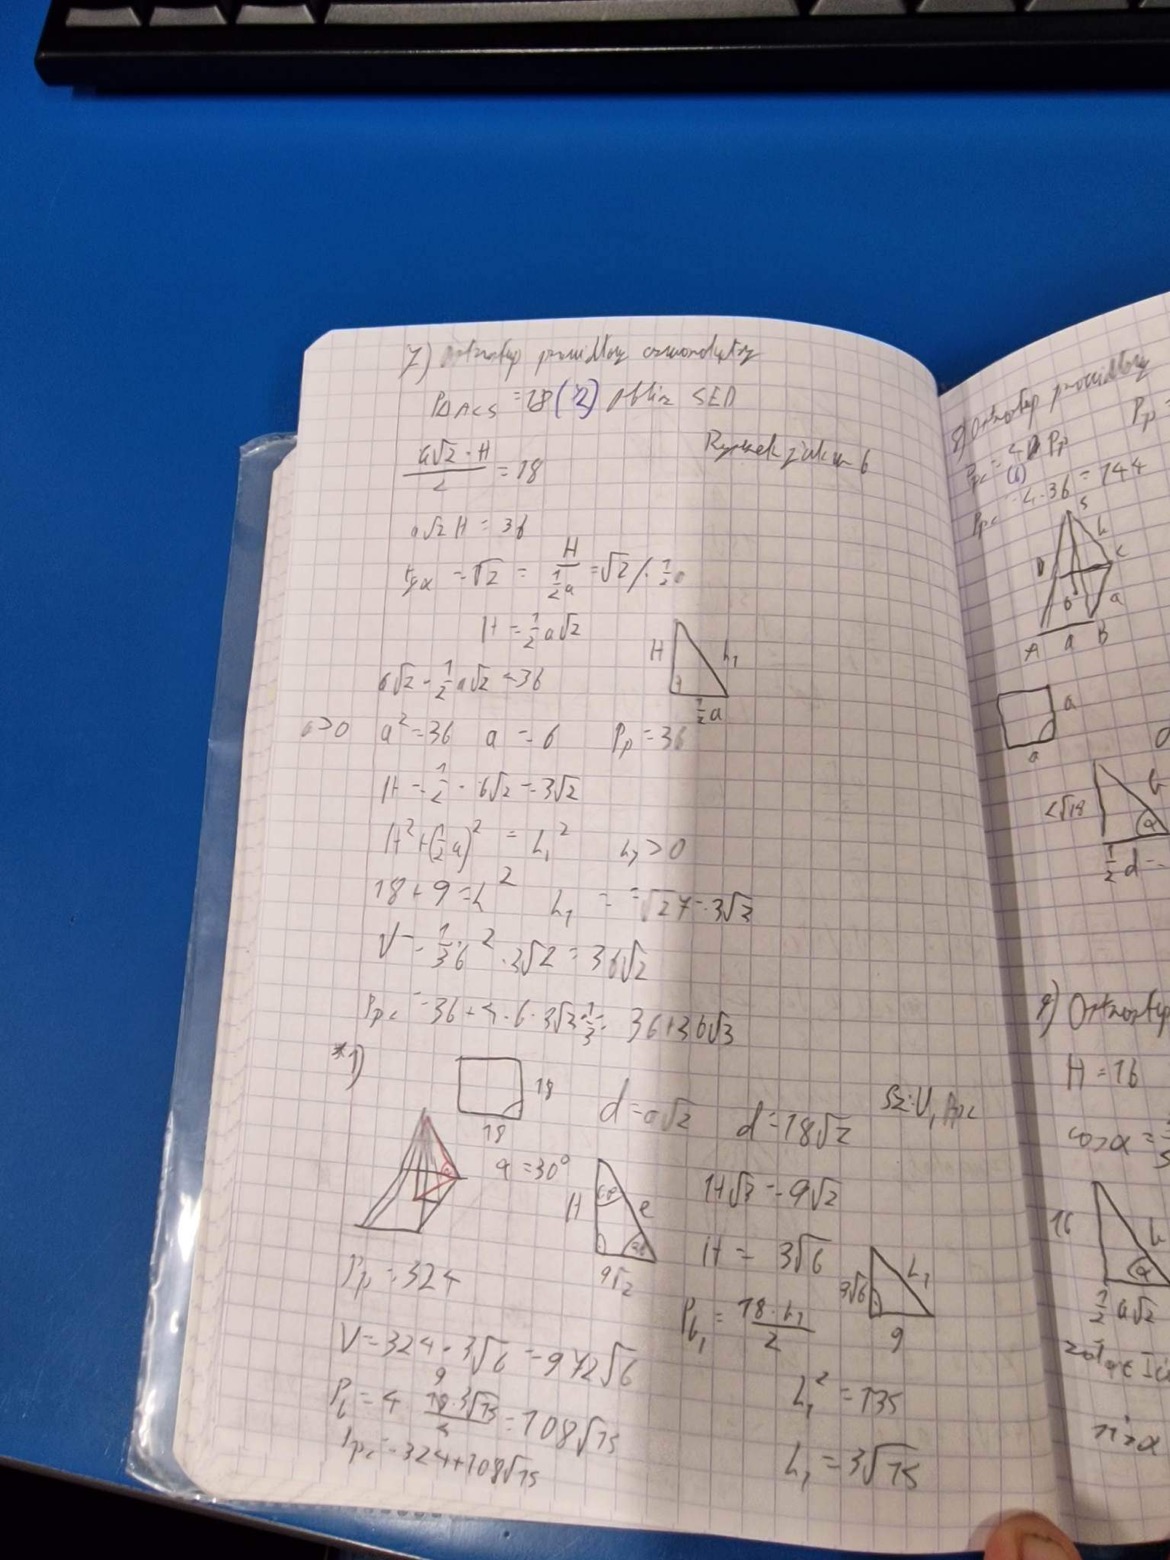 7) Ostrosłup prawidłowy czworokątny
P△ACS = 18 (j2) Oblicz SED
Rysunek jak w 6
a√2 · H / 2 = 18
a√2 H = 36
tgα = √2 = H / ½a = √2 / · ½a
H = ½a√2
H h₁ ½a
a√2 · ½a√2 = 36
a>0 a² = 36 a = 6 Pp = 36
H = ½ · 6√2 = 3√2
H² + (½a)² = h₁² h₁ > 0
18 + 9 = h² h₁ = √27 = 3√3
V = ⅓ 6² · 3√2 = 36√2
Ppc = 36 + 4 · 6 · 3√3 · ½ = 36 + 36√3
*1)
18
18
d = a√2 d = 18√2 Sz: V, Ppc
α = 30°
H 60° e 9√2
H√3 = 9√2
H = 3√6
3√6 h₁ 9
Pp = 324
Pb₁ = 18 · h₁ / 2
V = 324 · 3√6 = 972√6
h₁² = 135
Pb = 4 18 · 3√15 / 2 = 108√15
9
h₁ = 3√15
Ppc = 324 + 108√15
8) Ostrosłup prawidłowy
Pp =
Ppc = 4 Pp
Ppc = 4 · 36 = 144
S
h
D C
a
A a B
a
a
2√18 b α
½d =
9) Ostrosłup
H = 16
cosα =
16 h α
½a√2
sinα